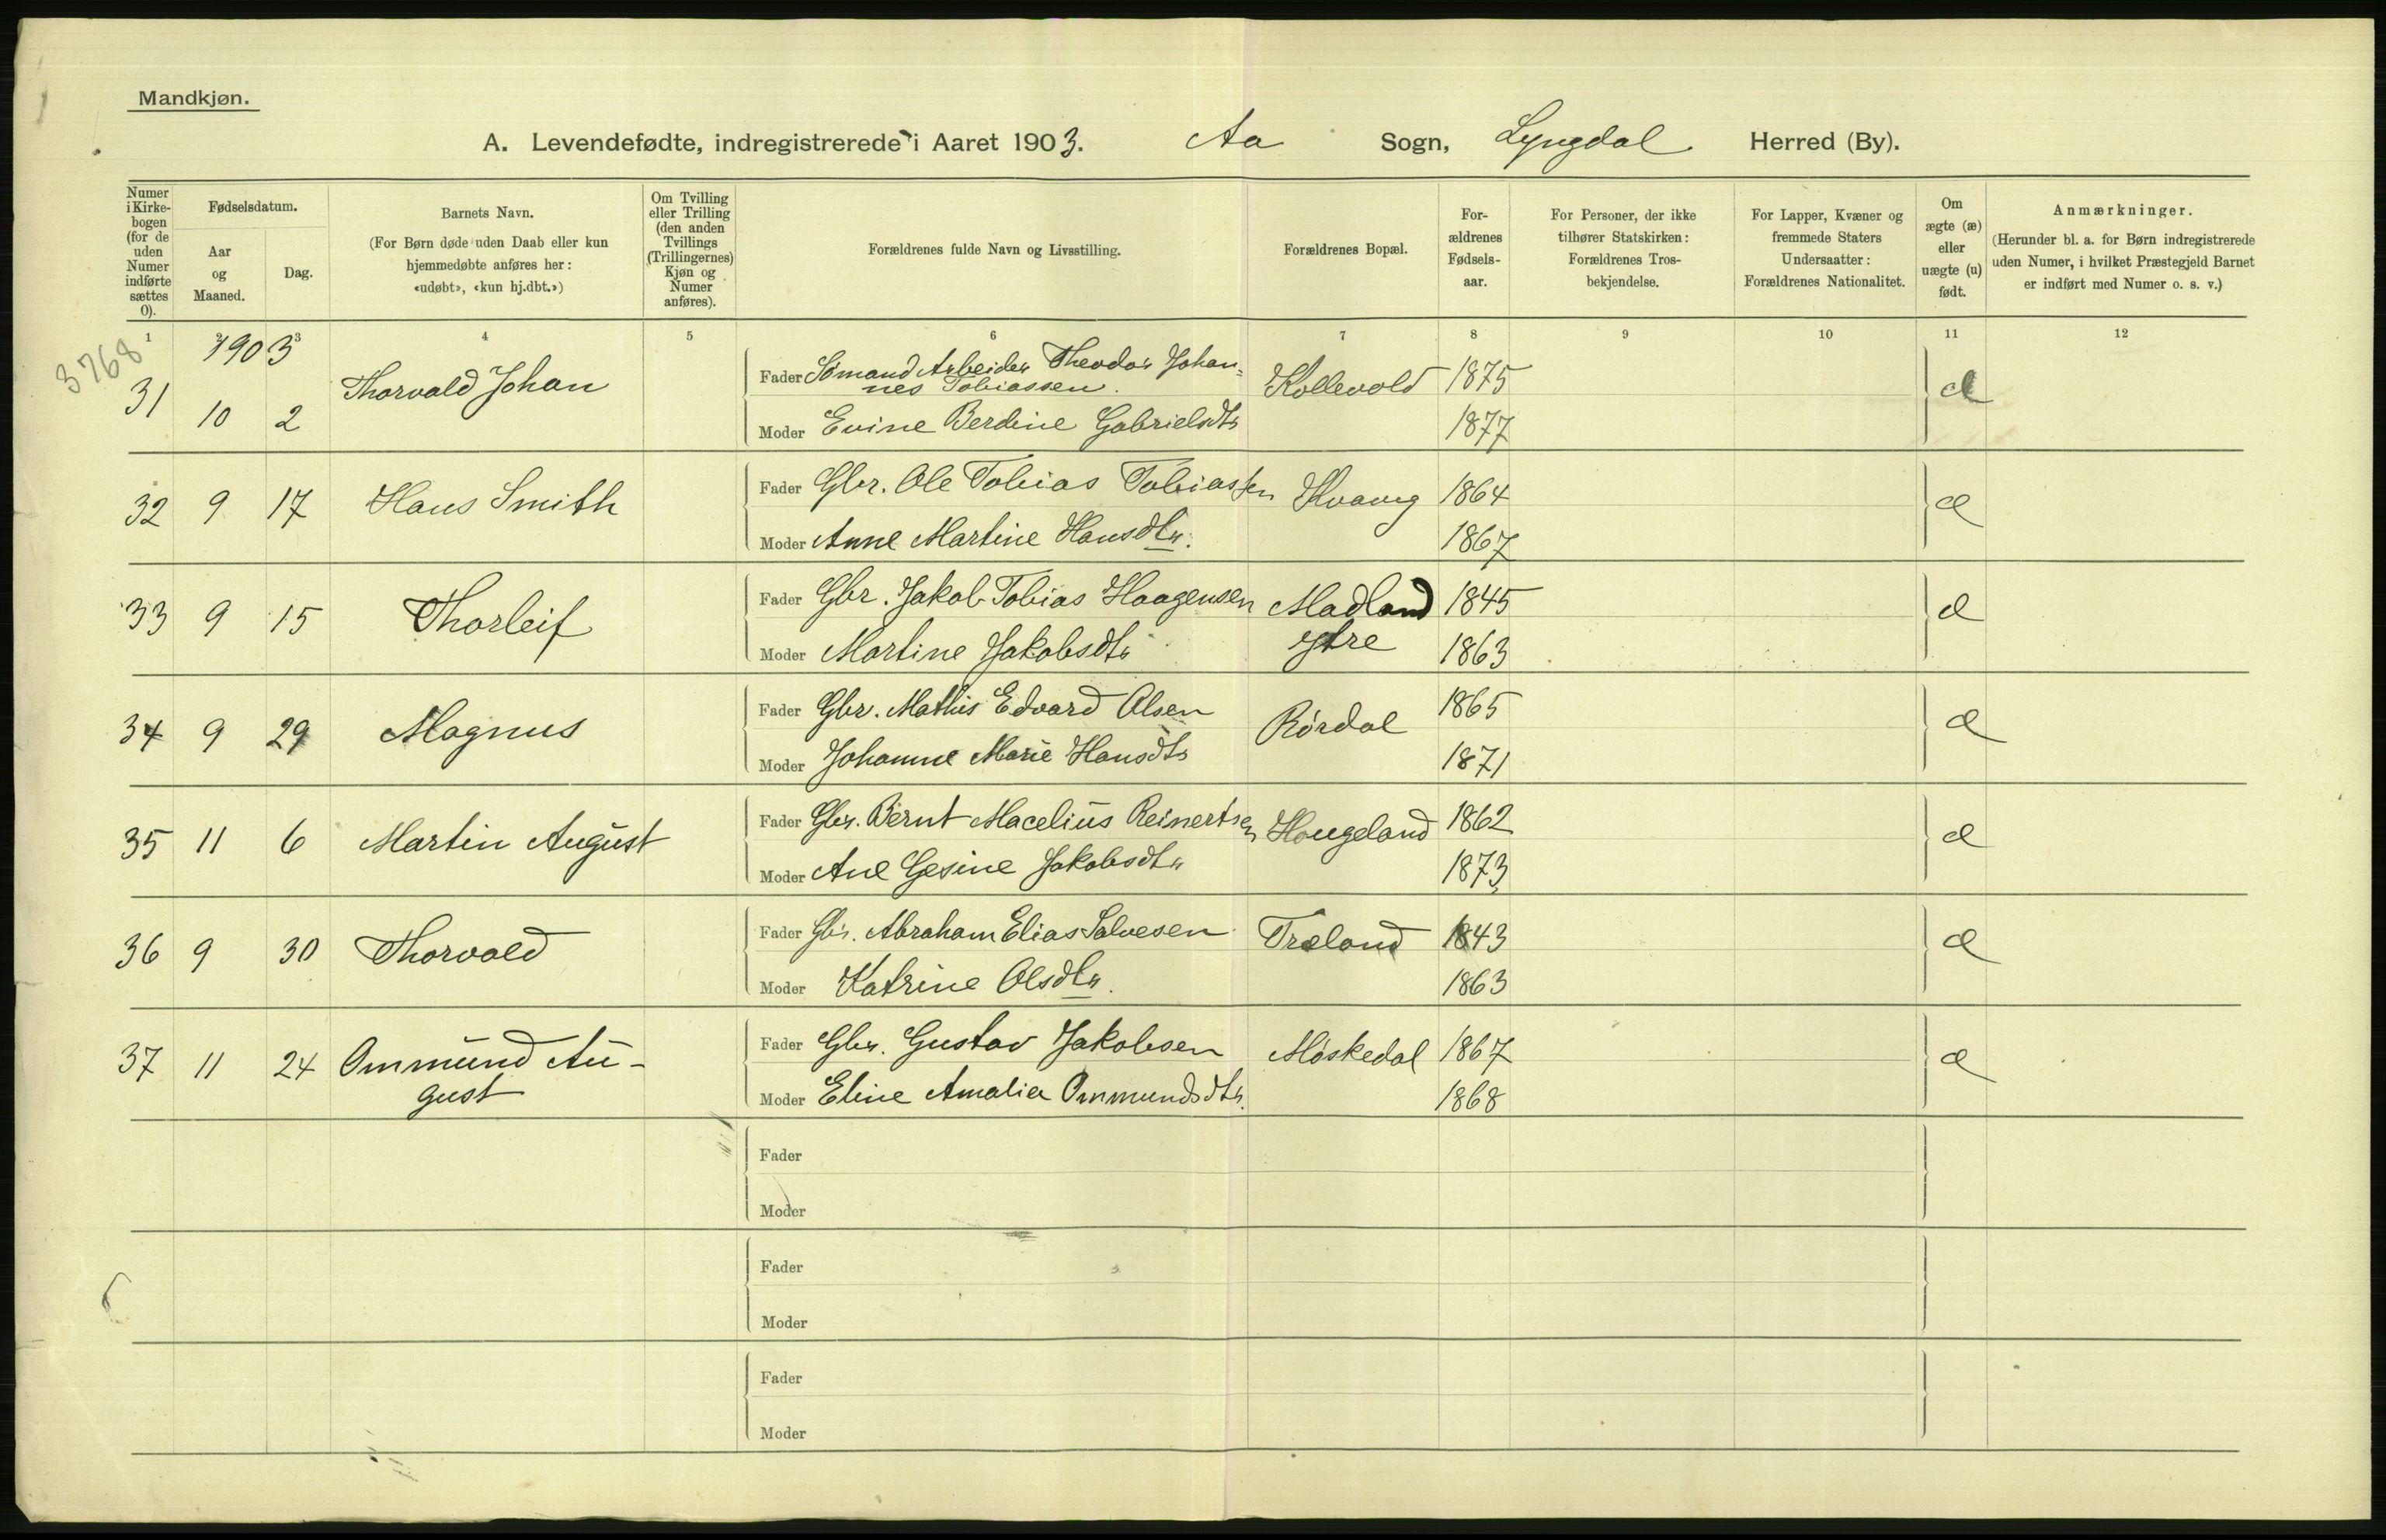 Mandkjøn.
A. Levendefødte, indregistrerede i Aaret 1903. Aa Sogn, Lyngdal Herred (By).
Numer i Kirke-bogen (for de uden Numer indførte sættes 0).
Fødselsdatum.
Aar og Maaned.
Dag.
Barnets Navn.
(For Børn døde uden Daab eller kun
hjemmedøbte anføres her:
«udøbt», «kun hj.dbt.»)
Om Tvilling
eller Trilling
(den anden
Tvillings
(Trillingernes)
Kjøn og
Numer
anføres).
Forældrenes fulde Navn og Livsstilling.
Forældrenes Bopæl.
For-
ældrenes
Fødsels-
aar.
For Personer, der ikke
tilhører Statskirken:
Forældrenes Tros-
bekjendelse.
For Lapper, Kvæner og
fremmede Staters
Undersaatter:
Forældrenes Nationalitet.
Om
ægte (æ)
eller
uægte (u)
født.
Anmærkninger.
(Herunder bl. a. for Børn indregistrerede
uden Numer, i hvilket Præstegjeld Barnet
er indført med Numer o. s. v.)
1 2 3 4 5 6 7 8 9 10 11 12
3768
1903
31 10 2 Thorvald Johan Fader Sømand Arbeider Theodor Johan=
nes Tobiassen. Kollevold 1875 æ
Moder Evine Berdine Gabrielsdtr 1877
32 9 17 Hans Smith Fader Gbr. Ole Tobias Tobiassen Kvavig 1864 æ
Moder Anne Martine Hansdtr. 1867
33 9 15 Thorleif Fader Gbr. Jakob Tobias Haagensen Madland 1845 æ
Moder Martine Jakobsdtr ytre 1863
34 9 29 Magnus Fader Gbr. Mathis Edvard Olsen Rørdal 1865 æ
Moder Johanne Marie Hansdtr 1871
35 11 6 Martin August Fader Gbr. Bernt Macelius Reinertsen Haugeland 1862 æ
Moder Ane Gesine Jakobsdtr 1873
36 9 30 Thorvald Fader Gbr. Abraham Elias Salvesen Træland 1843 æ
Moder Katrine Olsdtr. 1863
37 11 24 Ommund Au-
gust Fader Gbr. Gustav Jakobsen Møskedal 1867 æ
Moder Eline Amalia Ommundsdtr. 1868
Fader
Moder
Fader
Moder
Fader
Moder